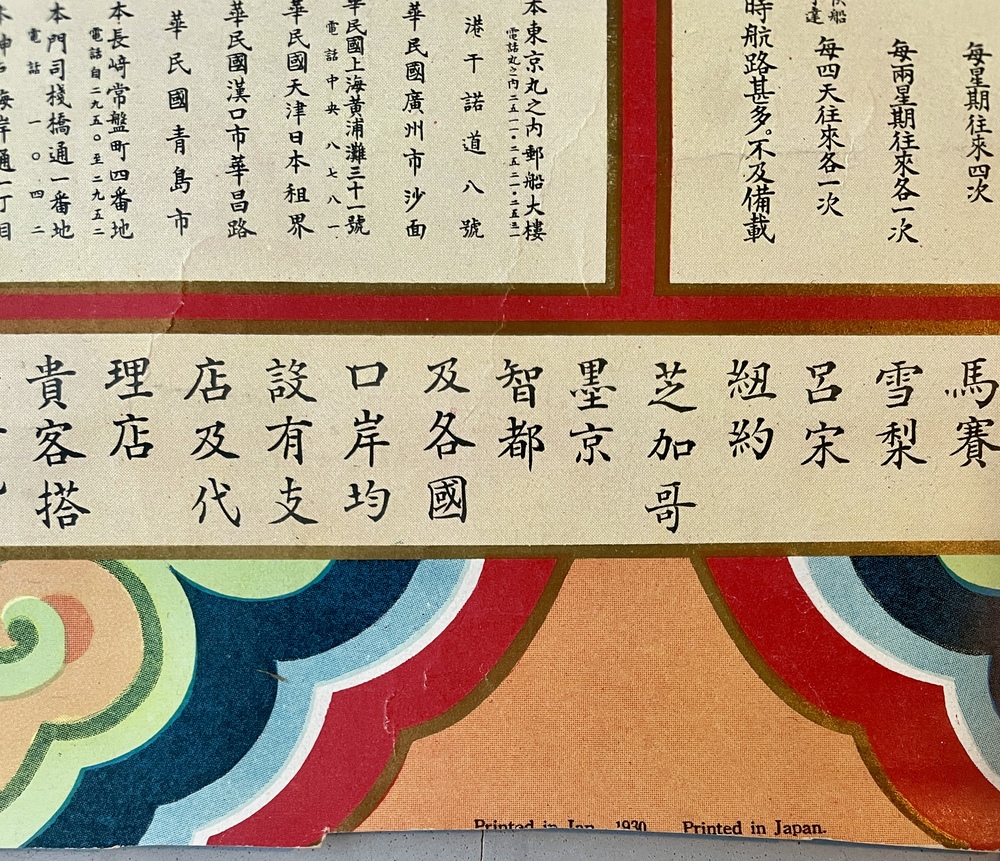 每星期往來四次
每兩星期往來各一次
船
達
每四天往來各一次
時航路甚多。不及備載
本東京丸之內郵船大樓
電話丸之內
港干諾道八號
華民國廣州市沙面
華民國上海黃浦灘三十一號
電話中央八七八一
華民國天津日本租界
華民國漢口市華昌路
華民國青島市
本長崎常盤町四番地
電話自二九五〇至二九五二
本門司棧橋通一番地
電話一〇四二
海岸通一丁目
馬賽
雪梨
呂宋
紐約
芝加哥
墨京
智都
及各國
口岸均
設有支
店及代
理店
貴客搭
Printed in Jan. 1930 Printed in Japan.